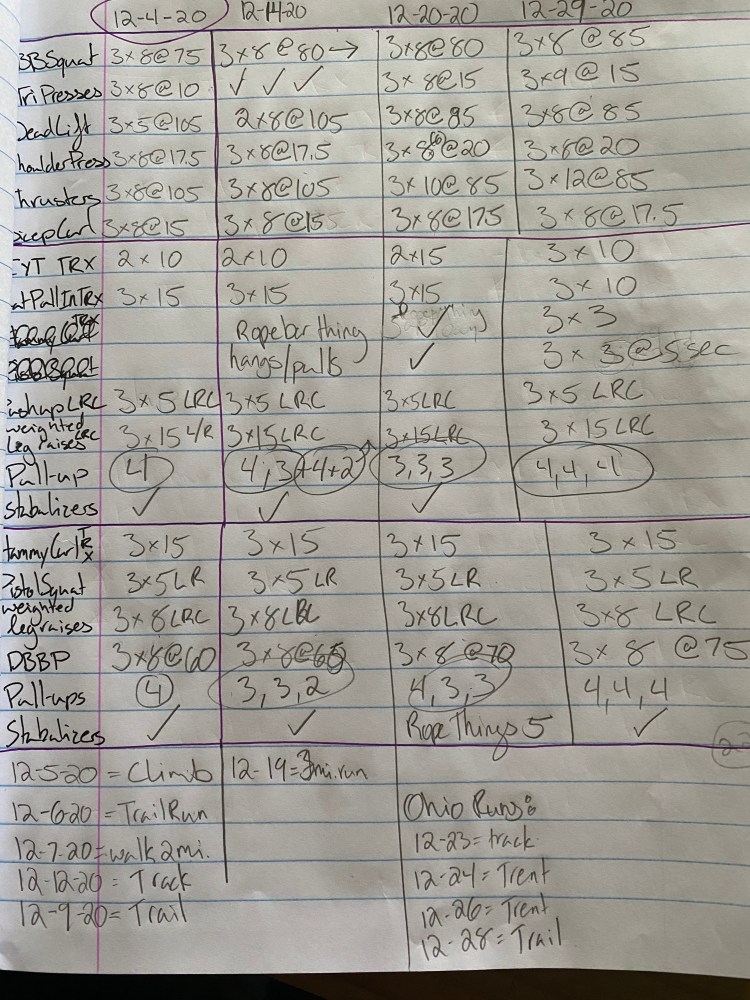 12-4-20 12-14-20 12-20-20 12-29-20
BBSquat 3×8@75 3×8@80→ 3×8@80 3×8@85
TriPresses 3×8@10 ✓ ✓ ✓ 3×8@15 3×9@15
DeadLift 3×5@105 2×8@105 3×8@95 3×8@85
houlderPress 3×8@17.5 3×8@17.5 3×8(6)@20 3×8@20
hrusters 3×8@105 3×8@105 3×10@85 3×12@85
icepCurl 3×8@15 3×8@15 3×8@175 3×8@17.5
IYT TRX 2×10 2×10 2×15 3×10
atPullInTRX 3×15 3×15 3×15 3×10
TRX Ropebar thing ✓ 3×3
hangs/pulls ✓ 3×3@5sec
ushupLRC 3×5 LRC 3×5 LRC 3×5LRC 3×5 LRC
weighted legraises LRC 3×15 L/R 3×15LRC 3×15LRC 3×15LRC
Pull-up 4 4,3+4+2 3,3,3 4,4,4
Stabalizers ✓ ✓ ✓
HammyCurlTRX 3×15 3×15 3×15 3×15
PistolSquat 3×5LR 3×5LR 3×5LR 3×5LR
weighted legraises 3×8LRC 3×8LRC 3×8LRC 3×8 LRC
DBBP 3×8@60 3×8@65 3×8@70 3×8 @75
Pull-ups 4 3,3,2 4,3,3 4,4,4
Stabalizers ✓ ✓ Rope Things 5 ✓
12-5-20 = Climb 12-19=3mi.run
12-6-20 = TrailRun Ohio Runs:
12-7-20=walk 2mi. 12-23=track
12-12-20 = Track 12-24=Trent
12-9-20= Trail 12-26=Trent
12-28=Trail